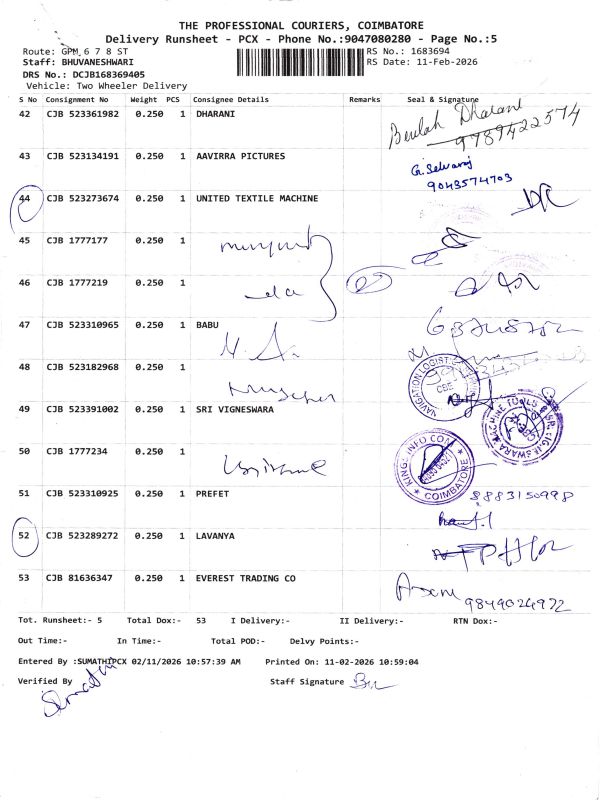 THE PROFESSIONAL COURIERS, COIMBATORE
Delivery Runsheet - PCX - Phone No.:9047080280 - Page No.:5
Route: GPM 6 7 8 ST RS No.: 1683694
Staff: BHUVANESHWARI RS Date: 11-Feb-2026
DRS No.: DCJB168369405
Vehicle: Two Wheeler Delivery
S No Consignment No Weight PCS Consignee Details Remarks Seal & Signature
42 CJB 523361982 0.250 1 DHARANI Beulah Dharani
9789422574
43 CJB 523134191 0.250 1 AAVIRRA PICTURES G. Selvaraj
9043574703
44 CJB 523273674 0.250 1 UNITED TEXTILE MACHINE
45 CJB 1777177 0.250 1
46 CJB 1777219 0.250 1
47 CJB 523310965 0.250 1 BABU
48 CJB 523182968 0.250 1
NAVIGATION LOGIST
CBE
49 CJB 523391002 0.250 1 SRI VIGNESWARA
50 CJB 1777234 0.250 1
KINGS INFO COM
COIMBATORE
51 CJB 523310925 0.250 1 PREFET 8883150998
52 CJB 523289272 0.250 1 LAVANYA
53 CJB 81636347 0.250 1 EVEREST TRADING CO
9849024972
Tot. Runsheet:- 5 Total Dox:- 53 I Delivery:- II Delivery:- RTN Dox:-
Out Time:- In Time:- Total POD:- Delvy Points:-
Entered By :SUMATHIPCX 02/11/2026 10:57:39 AM Printed On: 11-02-2026 10:59:04
Verified By Staff Signature
Sumathi